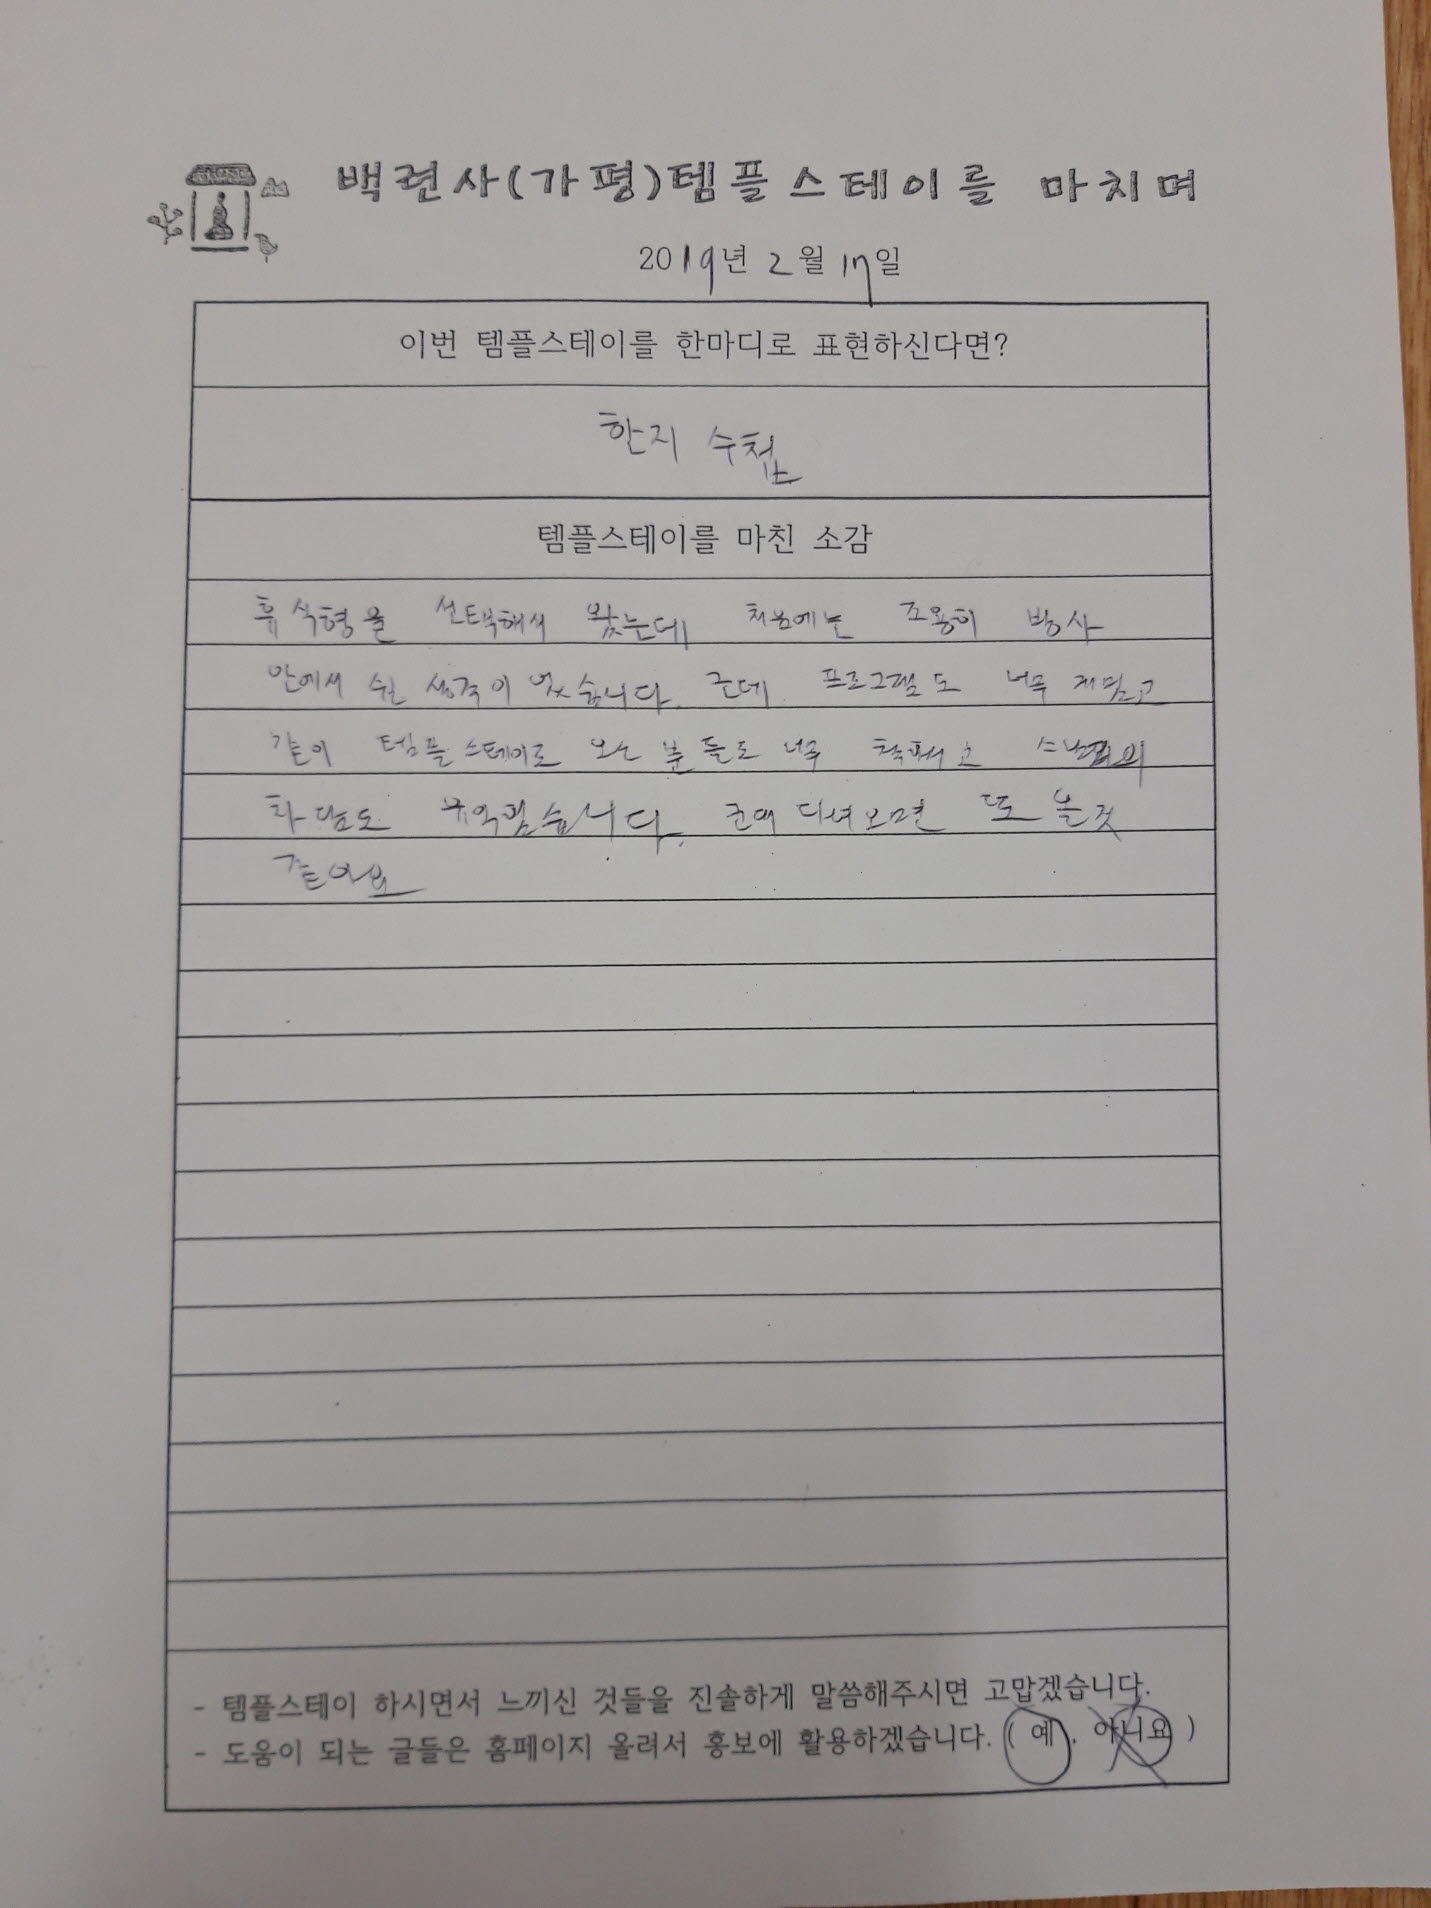 백련사(가평)템플스테이를 마치며
2019년 2월 17일
이번 템플스테이를 한마디로 표현하신다면?
한지 수첩
템플스테이를 마친 소감
휴식형을 선택해서 왔는데 처음에는 조용히 방사
안에서 쉴 생각이 었습니다. 근데 프로그램도 너무 재밌고
같이 템플스테이로 오신 분들도 너무 착하시고 스님과의
차담도 유익했습니다. 군대 다녀오면 또 올것
같아요
- 템플스테이 하시면서 느끼신 것들을 진솔하게 말씀해주시면 고맙겠습니다.
- 도움이 되는 글들은 홈페이지 올려서 홍보에 활용하겠습니다. ( 예 . 아니요 )